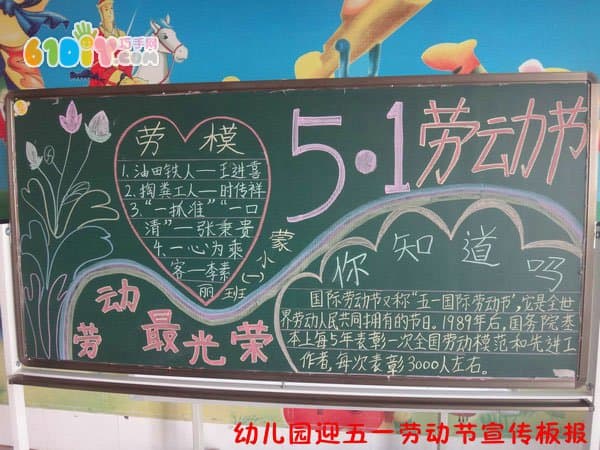 61DIY巧手网
.com
5·1 劳动节
劳模
1.油田铁人—王进喜
2.掏粪工人—时传祥
3."一抓准""一口
清"—张秉贵
4.一心为乘
客—李素
丽
小蒙
(一)
班
你知道吗
国际劳动节又称"五一国际劳动节",它是全世
界劳动人民共同拥有的节日。1989年后,国务院基
本上每5年表彰一次全国劳动模范和先进工
作者,每次表彰3000人左右。
劳动最光荣
幼儿园迎五一劳动节宣传板报